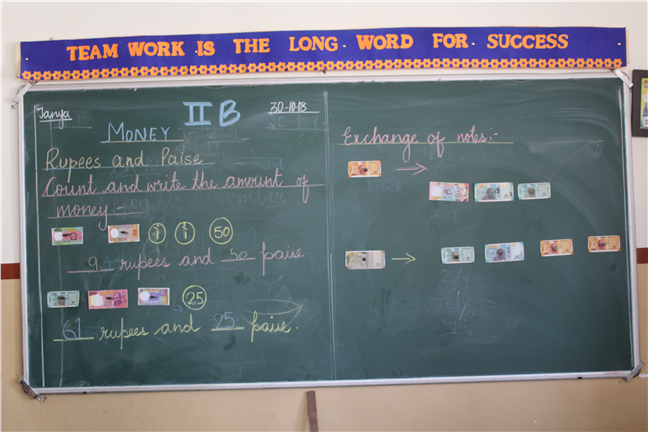 TEAM WORK IS THE LONG WORD FOR SUCCESS
Tanya
II B
30-10-18
MONEY
Rupees and Paise
Count and write the amount of
money:-
1 1 50
9 rupees and 50 paise.
25
61 rupees and 25 paise.
Exchange of notes:-